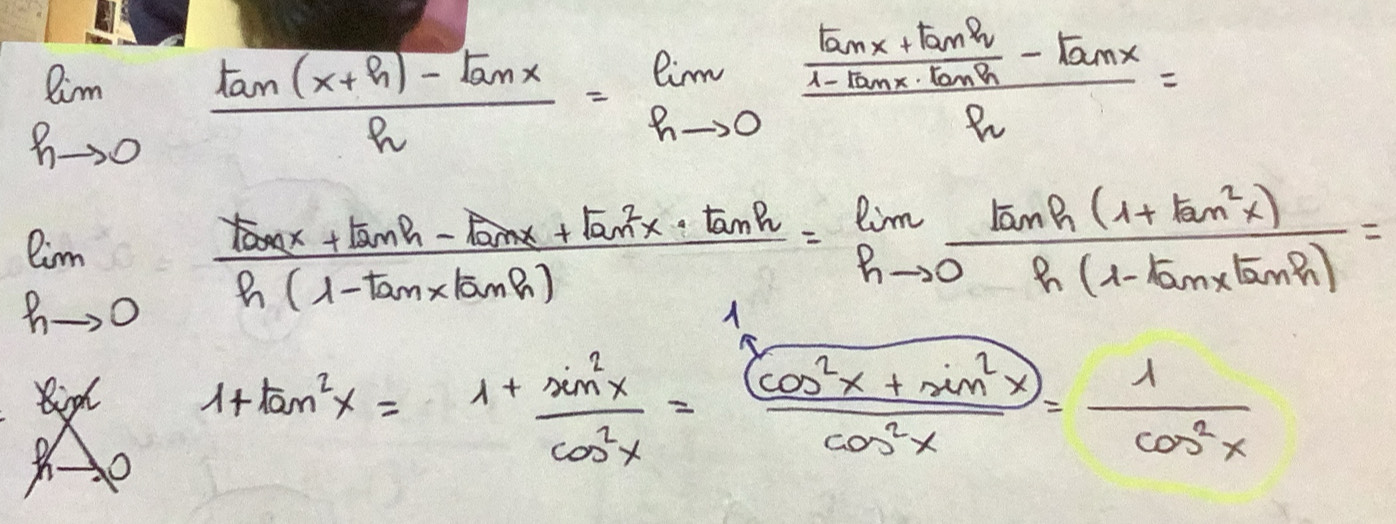 lim h→0 (tan (x+h) − tan x) / h = lim h→0 ((tan x + tan h) / (1 − tan x · tan h) − tan x) / h =
lim h→0 (tan x + tan h − tan x + tan²x · tan h) / (h (1 − tan x tan h)) = lim h→0 (tan h (1 + tan²x)) / (h (1 − tan x tan h)) =
1
lim h→0 1 + tan²x = 1 + sin²x / cos²x = (cos²x + sin²x) / cos²x = 1 / cos²x